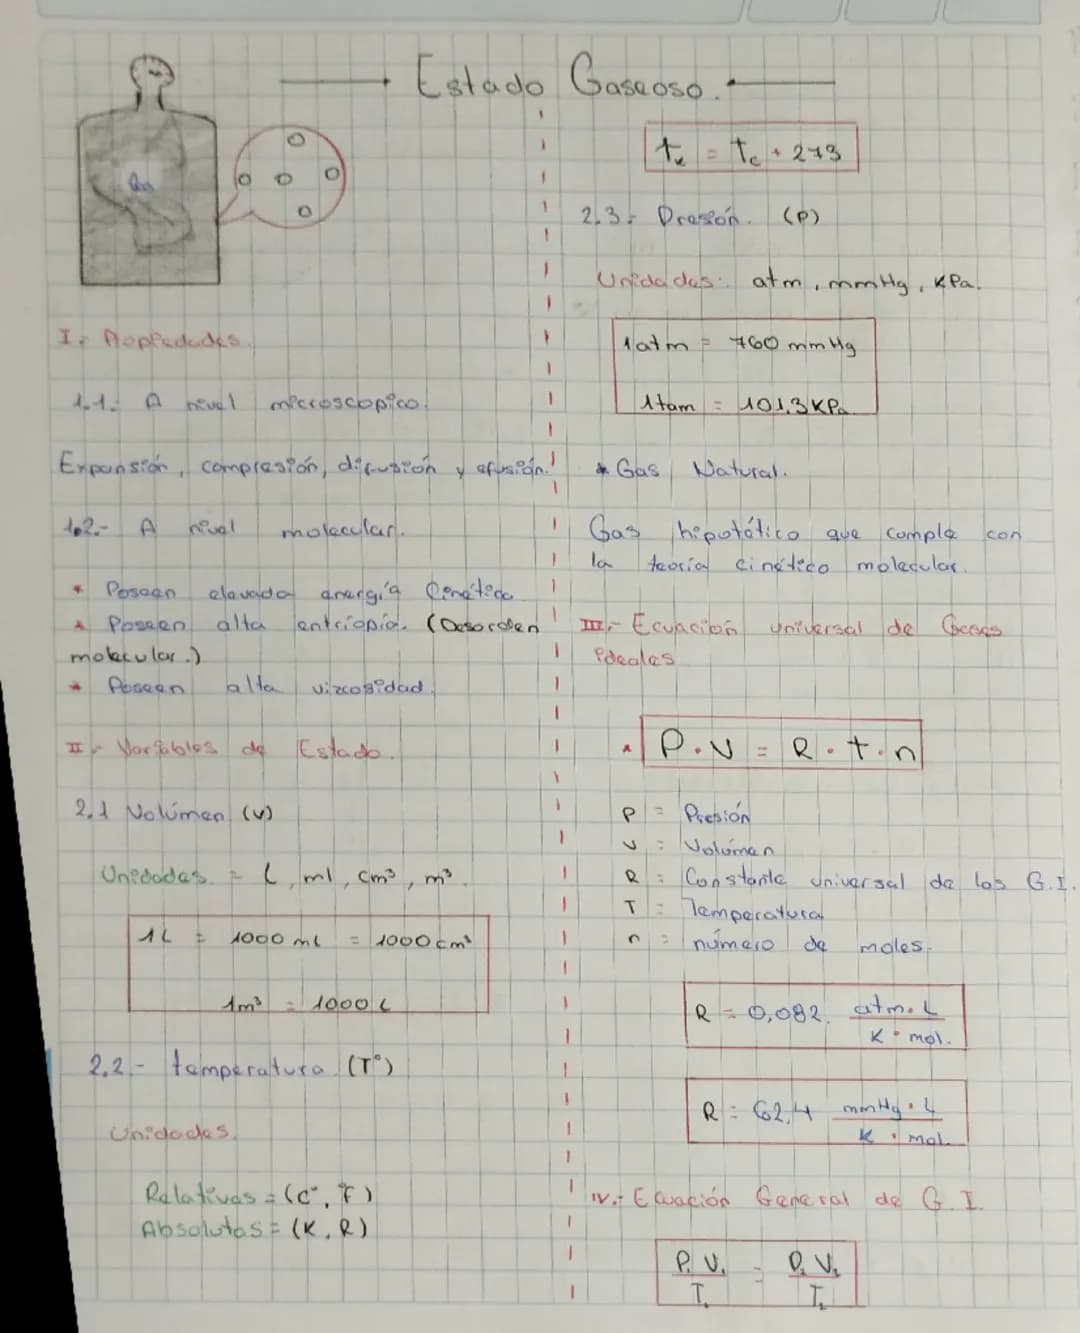 Estado Gaseoso.
Gas
I.- Propiedades.
1.1.- A nivel microscopico.
Expansión, compresión, difusión y efusión.
1.2.- A nivel molecular.
* Poseen elevada energía Cinética
* Poseen alta entriopia. (Desorden
molecular.)
* Poseen alta vizcosidad.
II.- Variables de Estado.
2.1 Volúmen (v)
Unidades. = L, ml, cm³, m³.
1L = 1000 mL = 1000 cm³
1m³ = 1000 L
2.2.- temperatura (T°)
Unidades.
Relativas = (C°, °F)
Absolutas = (K, R)
tK = tc + 273
2.3.- Presión. (P)
Unidades: atm, mmHg, KPa.
1atm = 760 mmHg
1tam = 101,3 KPa
* Gas Natural.
Gas hipotético que cumple con
la teoria cinético molecular.
III.- Ecuación universal de Gases
ideales
* P.V = R.t.n
P = Presión
V = Volúmen
R = Constante universal de los G.I.
T = Temperatura
n = número de moles.
R = 0,082. atm.L
K.mol.
R = 62,4 mmHg.L
K.mol
IV.- Ecuación General de G.I.
P₁ V₁ = P₂ V₂
T₁ T₂